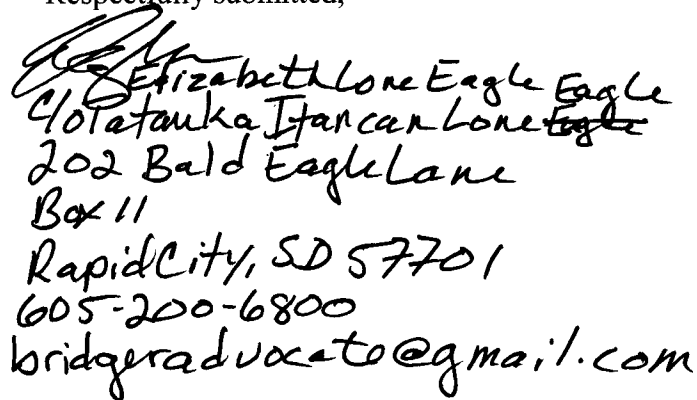 Respectfully submitted,
Elizabeth Lone Eagle Eagle
c/o Tatanka Itancan Lone Eagle
202 Bald Eagle Lane
Box 11
Rapid City, SD 57701
605-200-6800
bridgeradvocate@gmail.com